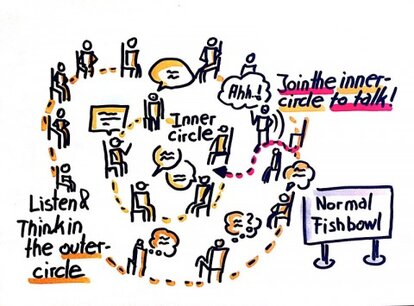 Ahh..!
Join the inner-
circle to talk!
Inner
circle
Listen &
Think in
the outer-
circle
?
Normal
Fishbowl